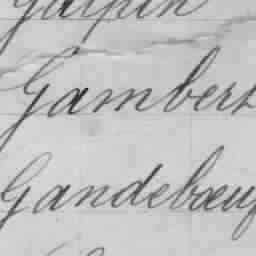 Galpin
Gambert
Gandebœuf